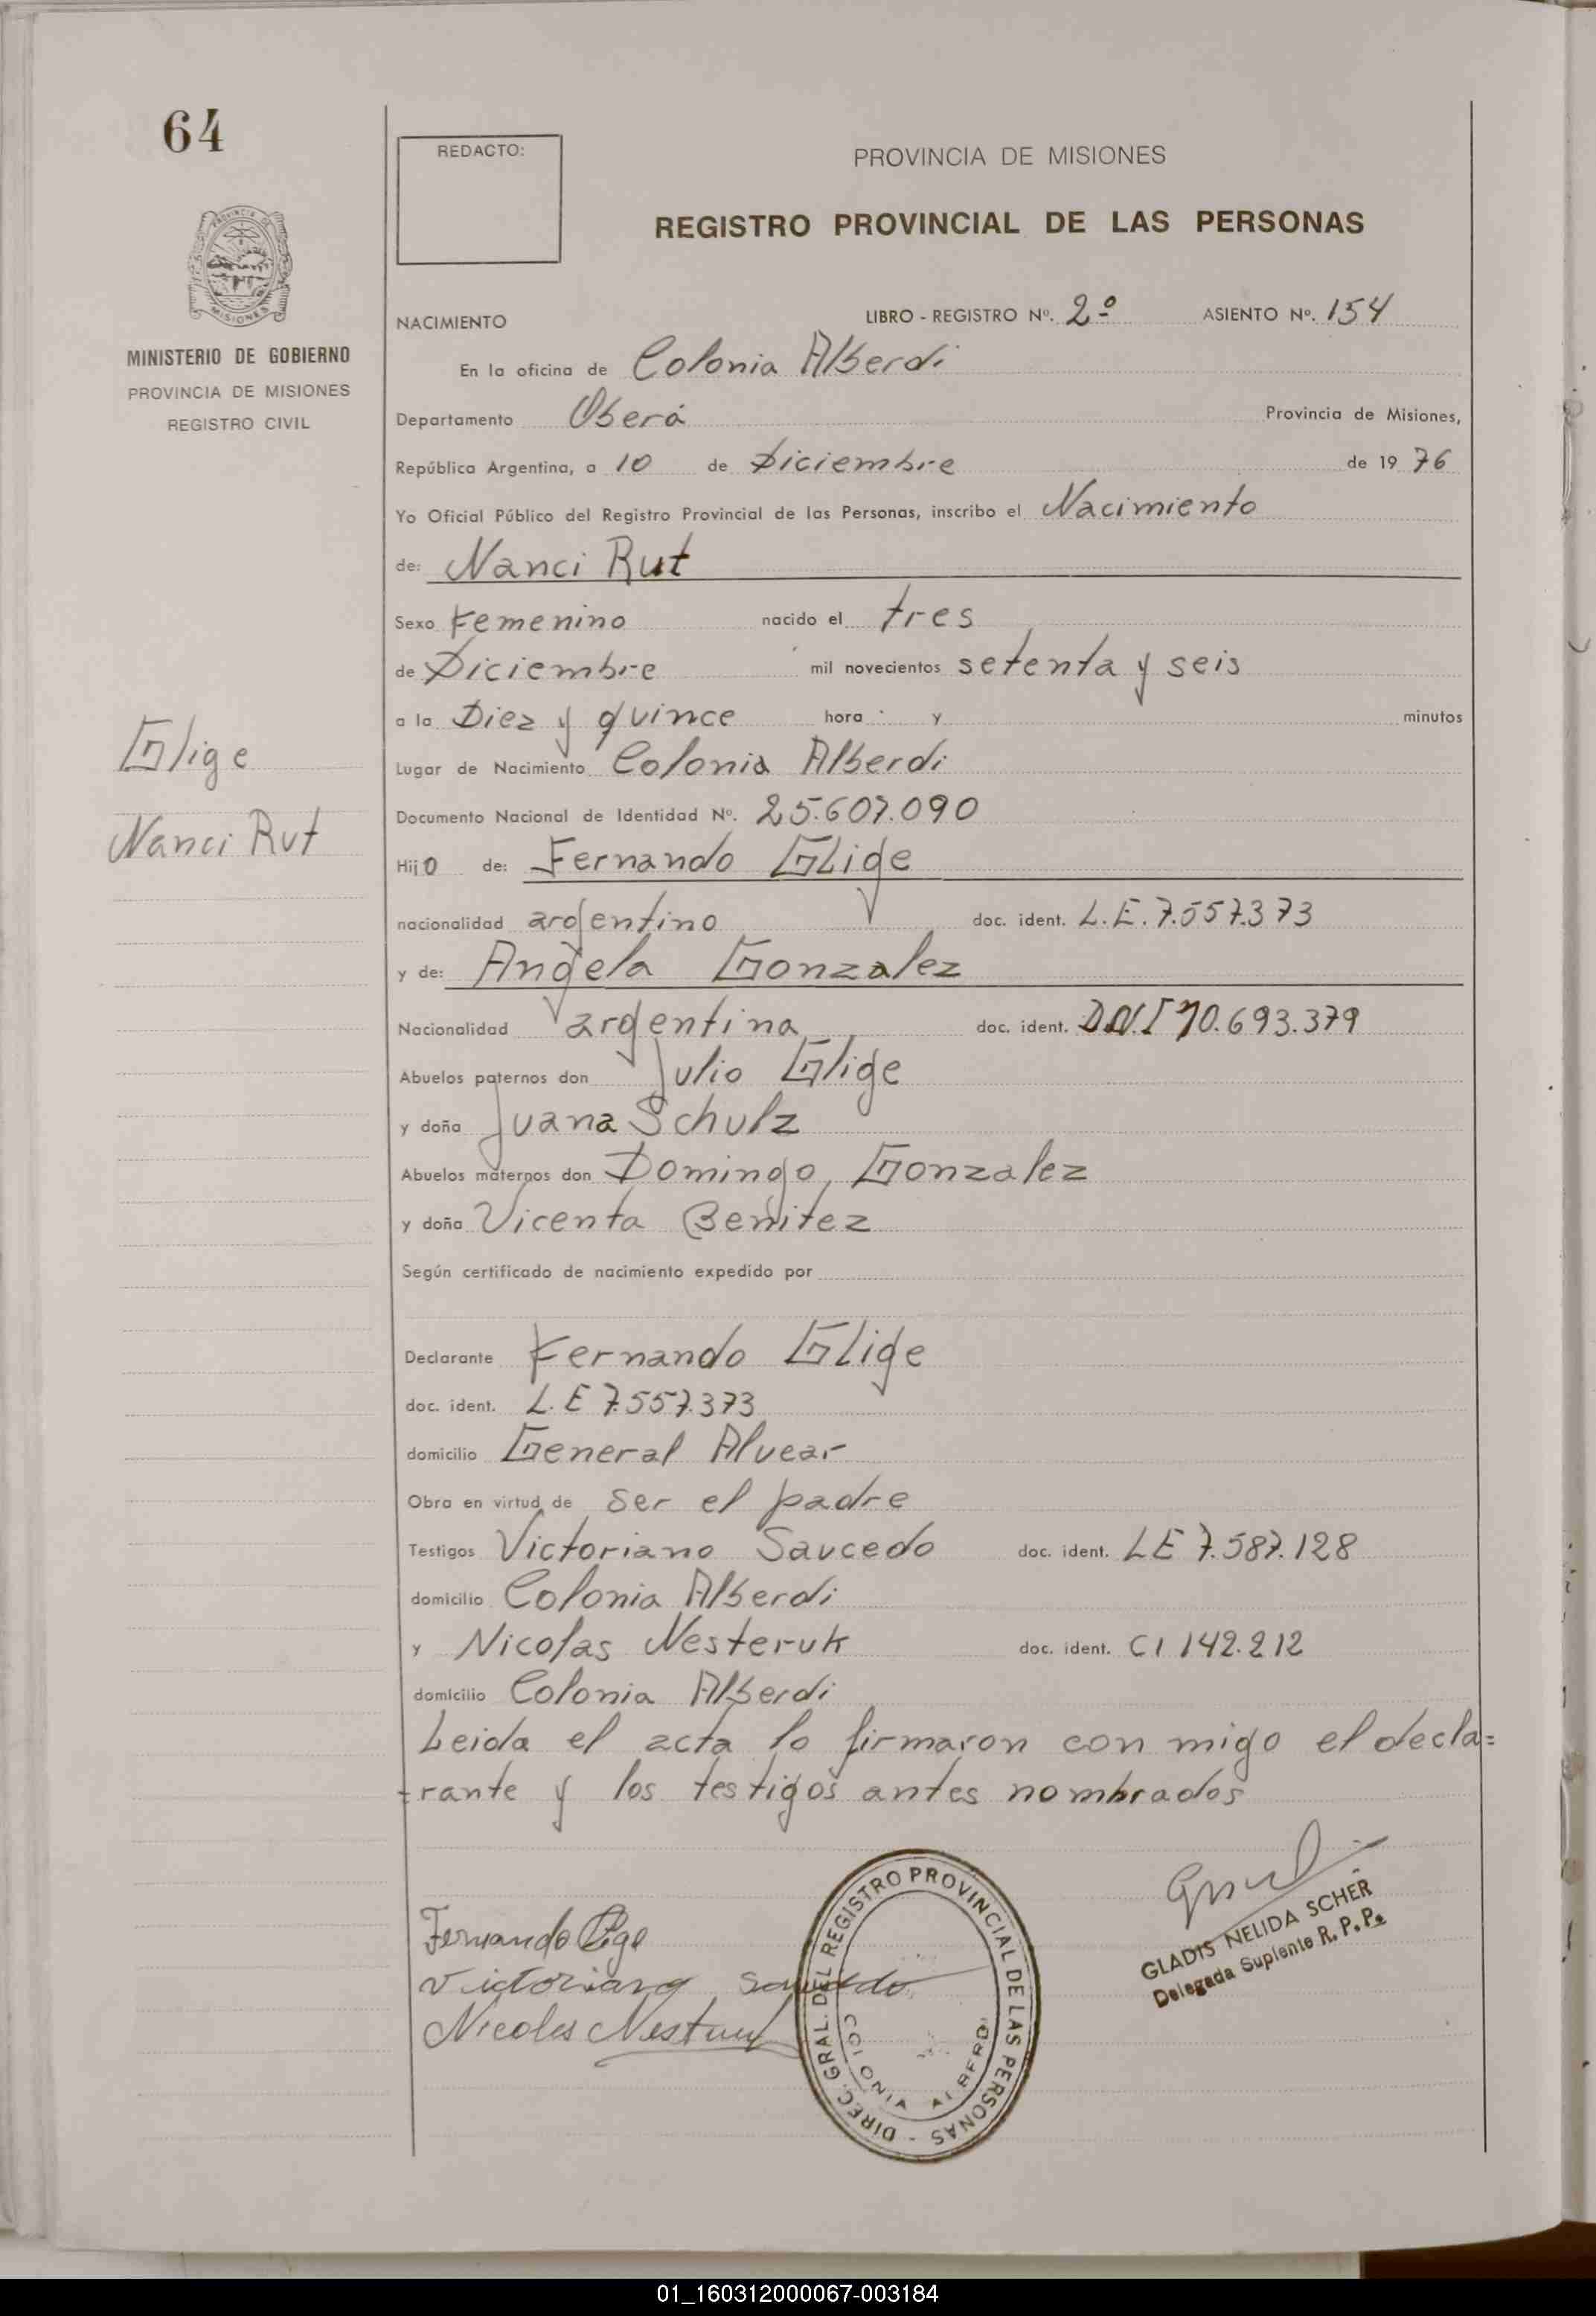 64
REDACTO:
PROVINCIA DE MISIONES
REGISTRO PROVINCIAL DE LAS PERSONAS
PROVINCIA DE
MISIONES
MINISTERIO DE GOBIERNO
PROVINCIA DE MISIONES
REGISTRO CIVIL
NACIMIENTO LIBRO - REGISTRO Nº. 2º ASIENTO Nº. 154
En la oficina de Colonia Alberdi
Departamento Oberá Provincia de Misiones,
República Argentina, a 10 de Diciembre de 19 76
Yo Oficial Público del Registro Provincial de las Personas, inscribo el Nacimiento
de: Nanci Rut
Sexo Femenino nacido el tres
de Diciembre mil novecientos setenta y seis
a la Diez y quince hora y minutos
Glige
Lugar de Nacimiento Colonia Alberdi
Documento Nacional de Identidad Nº. 25.607.090
Nanci Rut
Hij0 de: Fernando Glige
nacionalidad argentino doc. ident. L.E. 7.557.373
y de: Angela Gonzalez
Nacionalidad argentina doc. ident. D.N.I 10.693.379
Abuelos paternos don Julio Glige
y doña Juana Schulz
Abuelos maternos don Domingo Gonzalez
y doña Vicenta Benitez
Según certificado de nacimiento expedido por
Declarante Fernando Glige
doc. ident. L.E 7.557.373
domicilio General Alvear
Obra en virtud de ser el padre
Testigos Victoriano Saucedo doc. ident. LE 7.587.128
domicilio Colonia Alberdi
y Nicolas Nesteruk doc. ident. CI 142.212
domicilio Colonia Alberdi
Leida el acta lo firmaron con migo el decla=
=rante y los testigos antes nombrados
GLADIS NELIDA SCHER
Delegada Suplente R. P. P.
Fernando Glige
Victoriano Saucedo
Nicolas Nesteruk
DIREC. GRAL. DEL REGISTRO PROVINCIAL DE LAS PERSONAS -
COLONIA ALBERDI
01_160312000067-003184